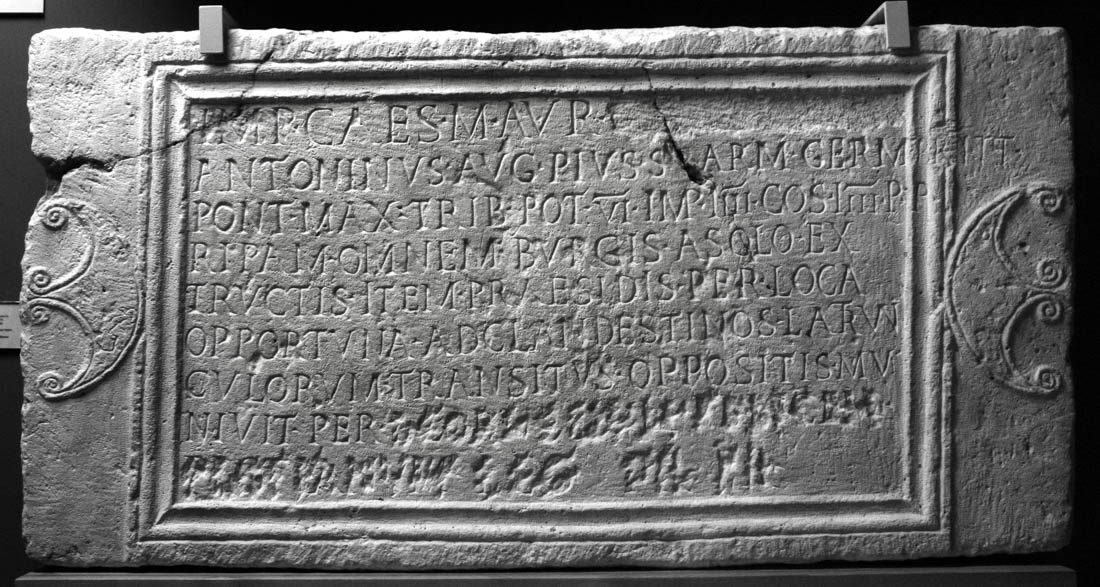 IMP·CAES·M·AVR·
ANTONINVS·AVG·PIVS·SARM·GERM·BRIT
PONT·MAX·TRIB·POT·VI·IMP·IIII·COS·IIII·P·P
RIPAM·OMNEM·BVRGIS·A SOLO·EX
TRVCTIS·ITEM·PRAESIDIS·PER·LOCA
OPPORTVNA·AD CLANDESTINOS·LATRVN
CVLORVM·TRANSITVS·OPPOSITIS·MV
NIVIT·PER